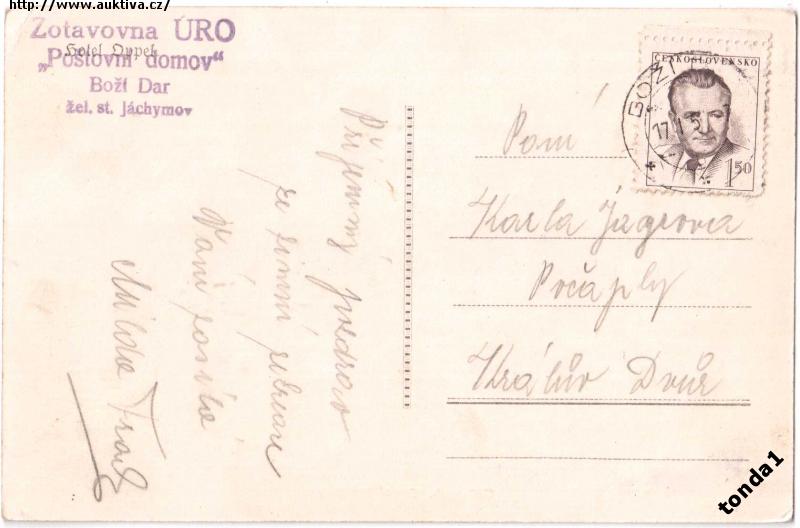 http://www.auktiva.cz/
Zotavovna ÚRO
Hotel Oppelt
„Poštovní domov"
Boží Dar
žel. st. Jáchymov
Příjemný pozdrav
ze zimní rekreace
Vám posílá
Milda
ČESKOSLOVENSKO
1 50
BOŽÍ
17. I. 5
Paní
Karla Jágrová
Počaply
Králův Dvůr
tonda1